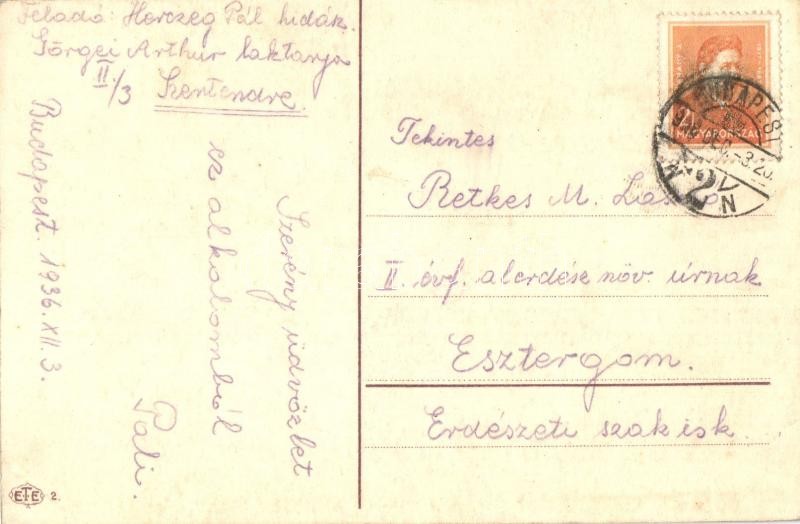 Feladó: Herczeg Pál hidász.
Görgei Arthur laktanya
II./3 Szentendre.
Budapest. 1936. XII. 3.
Szerény üdvözlet
ez alkalomból
Pali.
Tekintes
Retkes M. László
II. évf. alerdész növ. úrnak
Esztergom.
Erdészeti szakisk.
MAGYARORSZÁG
BUDAPEST
ETE 2.